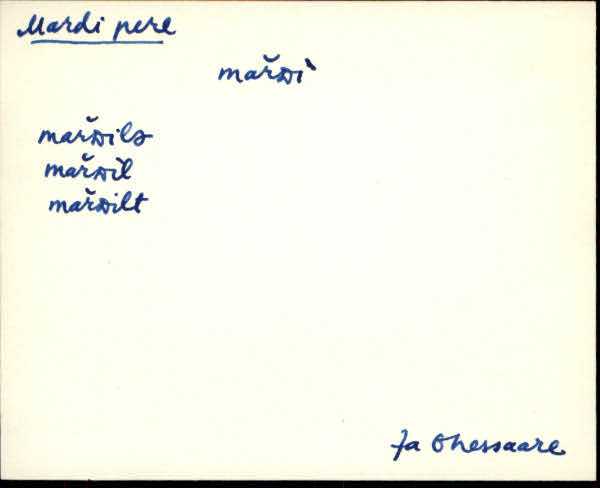 Mardi pere
mařᴅì
mařᴅilᴅ
mařᴅìl
mařᴅilt
Ja Ohessaare